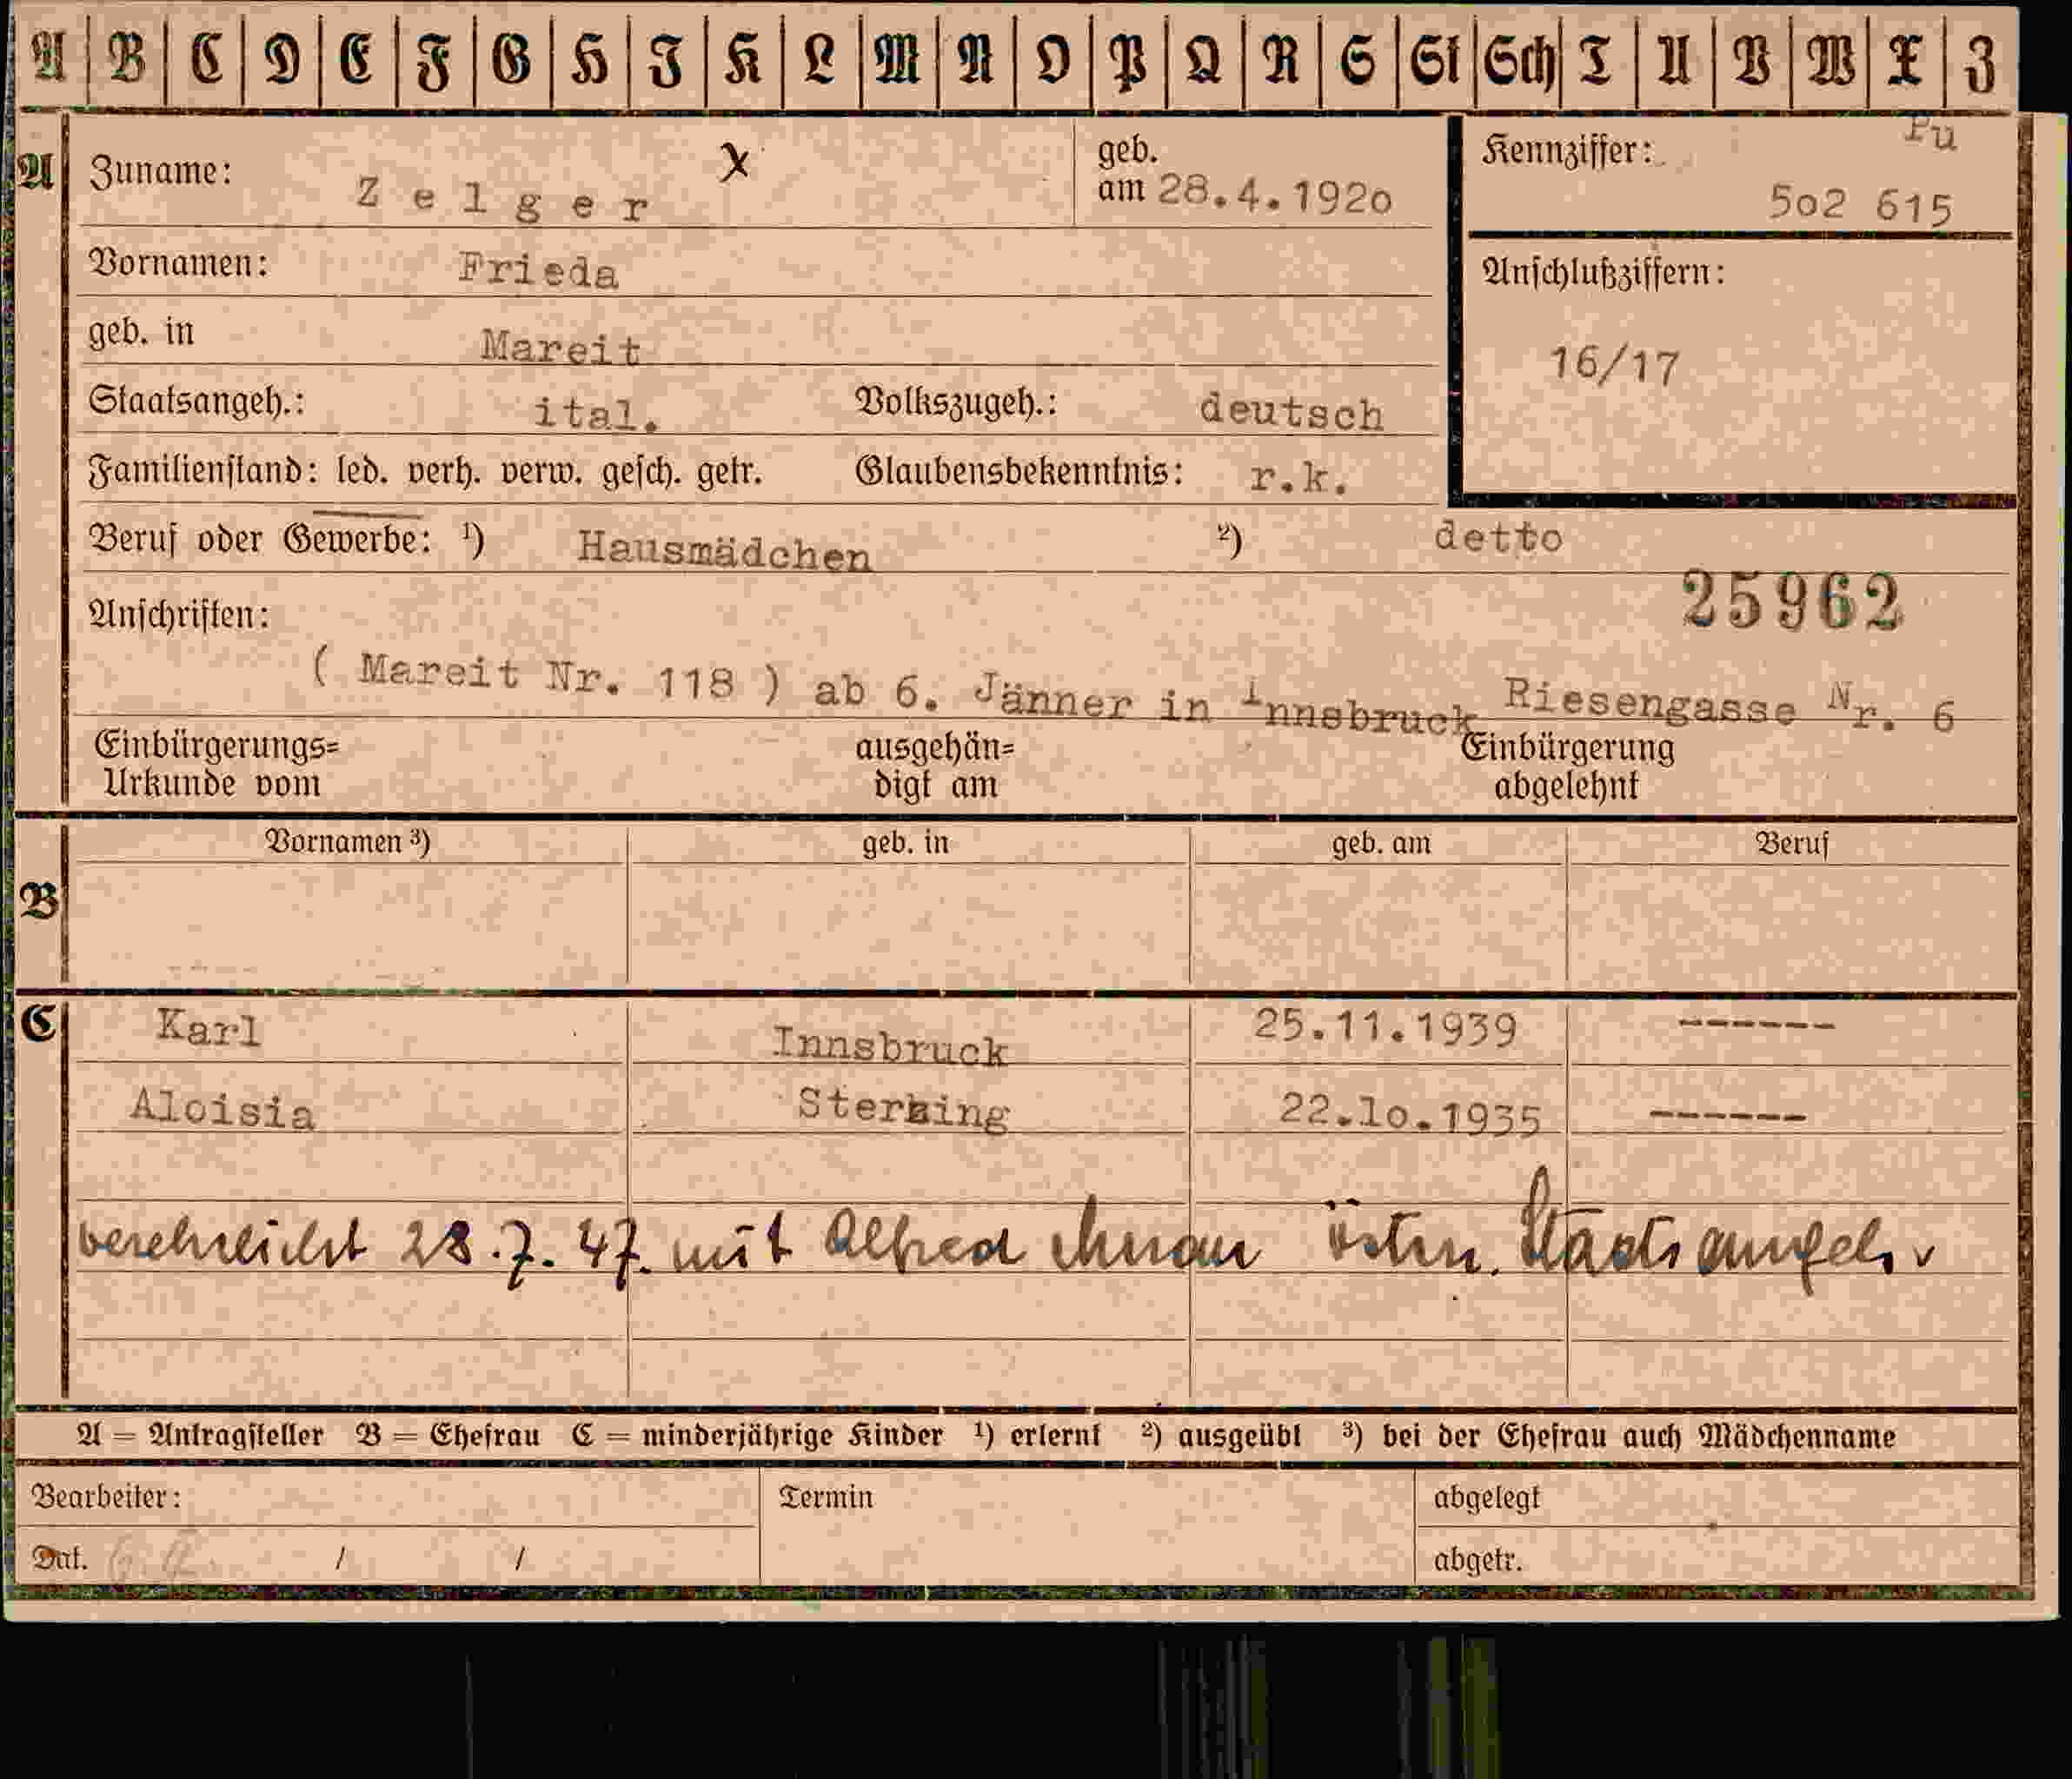 A B C D E F G H I K L M N O P Q R S St Sch T U V W X Z
A Zuname: Z e l g e r x geb. am 28.4.192o Kennziffer: Pu 5o2 615
Vornamen: Frieda Anschlußziffern:
geb. in Mareit 16/17
Staatsangeh.: ital. Volkszugeh.: deutsch
Familienstand: led. verh. verw. gesch. getr. Glaubensbekenntnis: r.k.
Beruf oder Gewerbe: ¹) Hausmädchen ²) detto
25962
Anschriften:
( Mareit Nr. 118 ) ab 6. Jänner in Innsbruck Riesengasse Nr. 6
Einbürgerungs= ausgehän= Einbürgerung
Urkunde vom digt am abgelehnt
Vornamen ³) geb. in geb. am Beruf
B
C Karl Innsbruck 25.11.1939 ------
Aloisia Sterzing 22.1o.1935 ------
verehelicht 28.7.47. mit Alfred östrr. Staatsangeh.
A = Antragsteller B = Ehefrau C = minderjährige Kinder ¹) erlernt ²) ausgeübt ³) bei der Ehefrau auch Mädchenname
Bearbeiter: Termin abgelegt
Dat. / / abgetr.